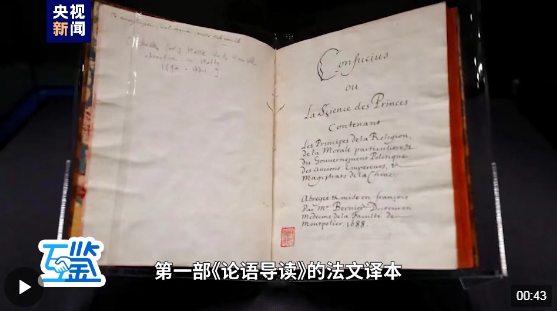 央视
新闻
Confucius
ou
La Science des Princes
Contenant
Les Principes de la Religion,
de la Morale particuliere,
du Gouvernement Politique
des Anciens Empereurs, &
Magistrats de la Chine.
Abregée & mise en françois
Par Mr Bernier Docteur en
Medecine de la Faculté de
Montpelier, 1688.
互鉴
第一部《论语导读》的法文译本
00:43